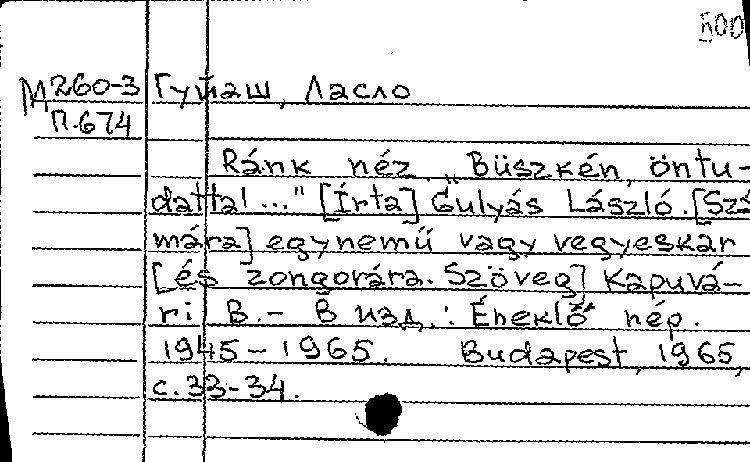 500
М 260-3 Гуйаш, Ласло
П.674
Ránk néz. „Büszkén, öntu-
dattal..." [Írta] Gulyás László. [Szá
mára] egynemű vagy vegyeskar
[és zongorára. Szöveg] Kapuvá-
ri B. - В изд.: Éneklő nép.
1945-1965. Budapest, 1965,
с. 33-34.